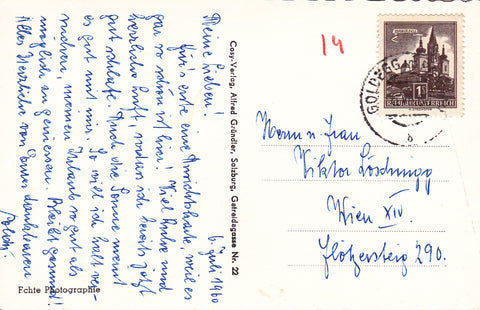 6. Juli 1960
Meine Lieben!
für's erste eine Ansichtskarte, weil es
gar so schön ist hier! Viel Ruhe und
herrliche Luft, sodass ich bereits jetzt
gut schlafe. Auch die Sonne meint
es gut mit mir. So will ich halt ver-
suchen, meinen Urlaub so gut als
möglich zu geniessen. Bleibt gesund!
Alles Herzliche von Eurer dankbaren
Cosy-Verlag, Alfred Gründler, Salzburg, Getreidegasse Nr. 22
Echte Photographie
14
MARIAZELL
1
REPUBLIK ÖSTERREICH
GOLDEGG
b
Herrn u. Frau
Viktor Löschnigg
Wien XIV.
Flötzersteig 290.